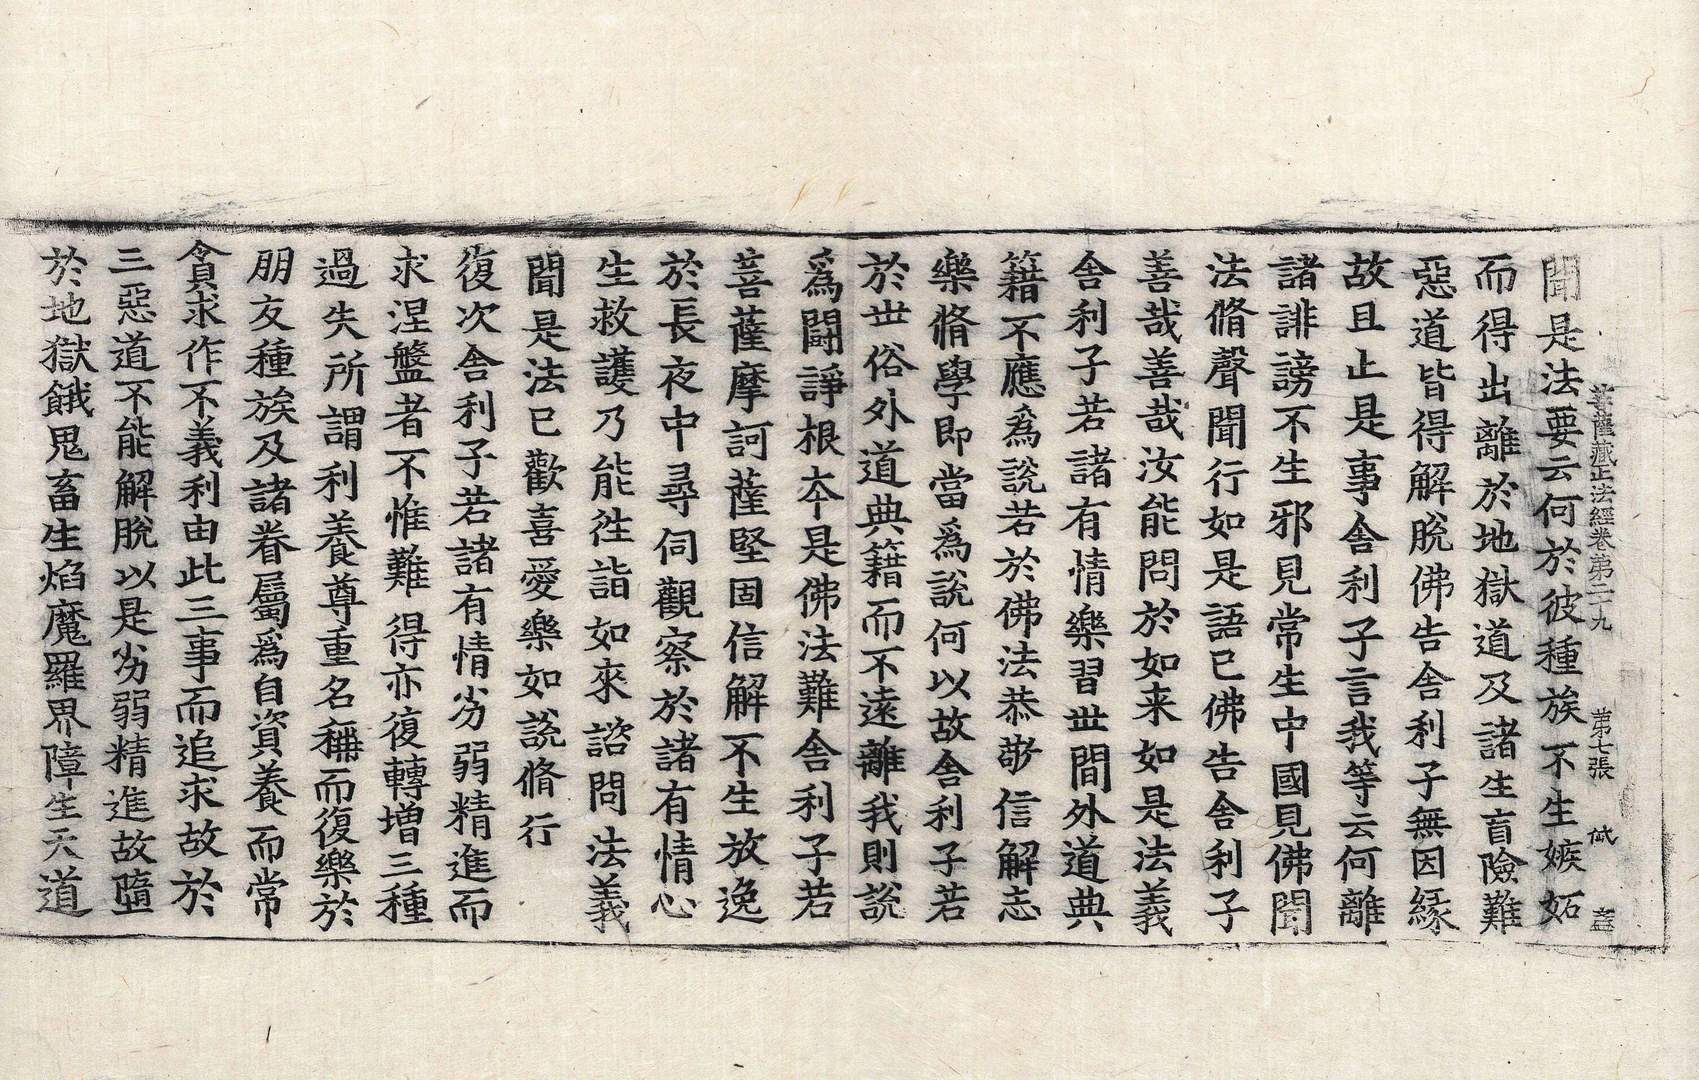 菩薩藏正法經卷第二十九 第七張 㦲 盖
聞是法要云何於彼種族不生嫉妬
而得出離於地獄道及諸生盲險難
惡道皆得解脫佛告舍利子無因緣
故且止是事舍利子言我等云何離
諸誹謗不生邪見常生中國見佛聞
法脩聲聞行如是語已佛告舍利子
善哉善哉汝能問於如来如是法義
舍利子若諸有情樂習世間外道典
籍不應爲說若於佛法恭敬信解志
樂脩學即當爲說何以故舍利子若
於世俗外道典籍而不遠離我則說
爲鬪諍根本是佛法難舍利子若
菩薩摩訶薩堅固信解不生放逸
於長夜中尋伺觀察於諸有情心
生救護乃能徃詣如來諮問法義
聞是法已歡喜愛樂如說脩行
復次舍利子若諸有情劣弱精進而
求涅盤者不惟難得亦復轉增三種
過失所謂利養尊重名稱而復樂於
朋友種族及諸眷屬爲自資養而常
貪求作不義利由此三事而追求故於
三惡道不能解脫以是劣弱精進故墮
於地獄餓鬼畜生焰魔羅界障生天道